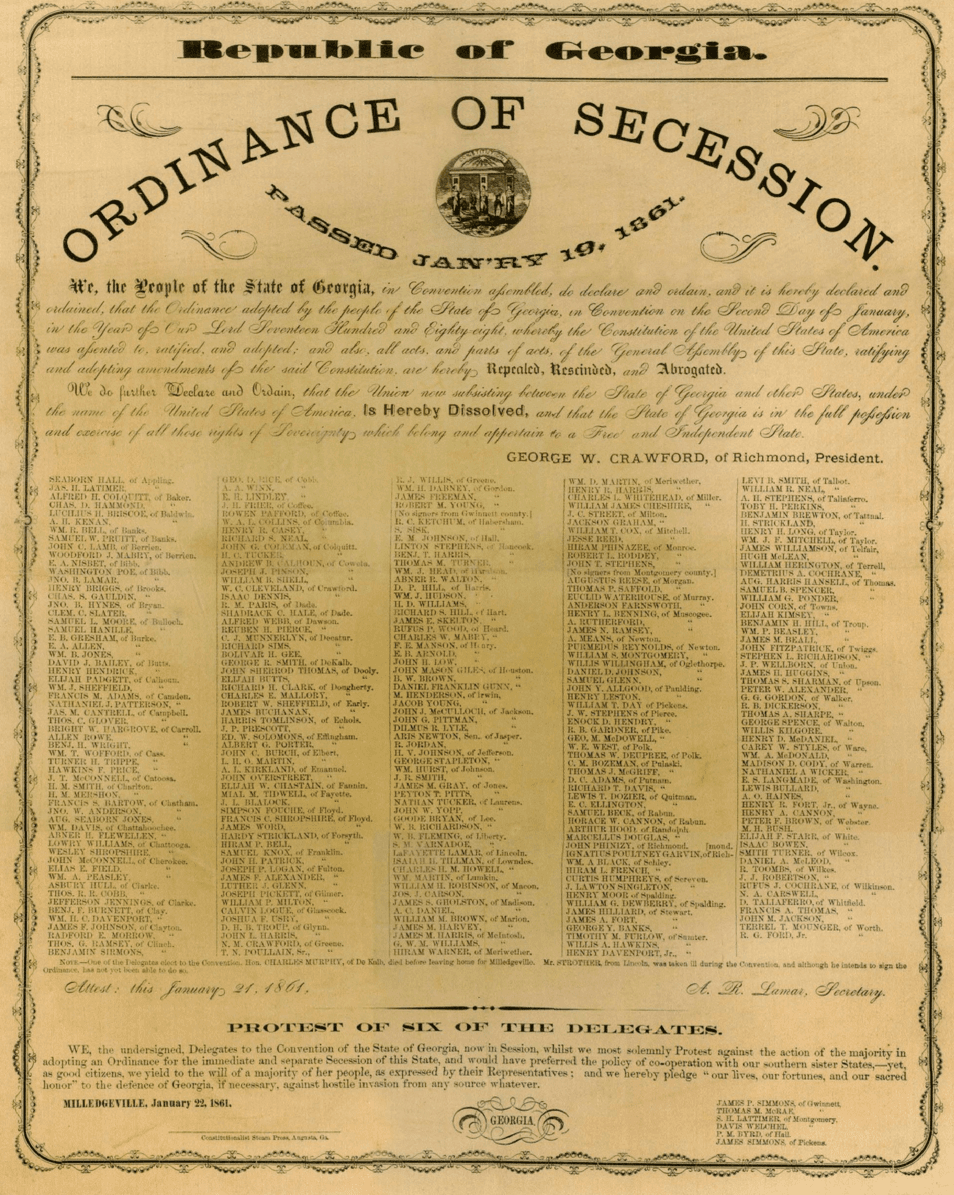 Republic of Georgia.
ORDINANCE OF SECESSION.
PASSED JAN'RY 19, 1861.
We, the People of the State of Georgia, in Convention assembled, do declare and ordain, and it is hereby declared and
ordained, that the Ordinance adopted by the people of the State of Georgia, in Convention on the Second Day of January,
in the Year of Our Lord Seventeen Hundred and Eighty-eight, whereby the Constitution of the United States of America
was assented to, ratified, and adopted; and also, all acts, and parts of acts, of the General Assembly of this State, ratifying
and adopting amendments of the said Constitution, are hereby Repealed, Rescinded, and Abrogated.
We do further Declare and Ordain, that the Union now subsisting between the State of Georgia and other States, under
the name of the United States of America, Is Hereby Dissolved, and that the State of Georgia is in the full possession
and exercise of all those rights of Sovereignty which belong and appertain to a Free and Independent State.
GEORGE W. CRAWFORD, of Richmond, President.
SEABORN HALL, of Appling.
JAS. H. LATIMER, "
ALFRED H. COLQUITT, of Baker.
CHAS. D. HAMMOND, "
LUCIUS H. BRISCOE, of Baldwin.
A. H. KENAN, "
WM. R. BELL, of Banks.
SAMUEL W. PRUITT, of Banks.
JOHN C. LAMB, of Berrien.
WOODFORD J. MABRY, of Berrien.
E. A. NISBET, of Bibb.
WASHINGTON POE, of Bibb.
JNO. B. LAMAR, "
HENRY BRIGGS, of Brooks.
CHAS. S. GAULDEN, "
JNO. B. HINES, of Bryan.
CLEM. C. SLATER, "
SAMUEL L. MOORE, of Bulloch.
SAMUEL HANILLE, "
E. B. GRESHAM, of Burke.
E. A. ALLEN, "
WM. B. JONES, "
DAVID J. BAILEY, of Butts.
HENRY HENDRICK, "
ELIJAH PADGETT, of Calhoun.
WM. J. SHEFFIELD, "
FRANCIS M. ADAMS, of Camden.
NATHANIEL J. PATTERSON, "
JAS. M. CANTRELL, of Campbell.
THOS. C. GLOVER, "
BRIGHT W. HARGROVE, of Carroll.
ALLEN ROWE, "
BENJ. H. WRIGHT, "
WM. T. WOFFORD, of Cass.
TURNER H. TRIPPE, "
HAWKINS F. PRICE, "
J. T. McCONNELL, of Catoosa.
H. M. SMITH, of Charlton.
H. M. MERSHON, "
FRANCIS S. BARTOW, of Chatham.
JNO. W. ANDERSON, "
AUG. SEABORN JONES, "
WM. DAVIS, of Chattahoochee.
ABNER H. FLEWELLEN, "
LOWRY WILLIAMS, of Chattooga.
WESLEY SHROPSHIRE, "
JOHN McCONNELL, of Cherokee.
ELIAS E. FIELD, "
WM. A. PEASLEY, "
ASBURY HULL, of Clarke.
THOS. R. R. COBB, "
JEFFERSON JENNINGS, of Clarke.
BENJ. F. BURNETT, of Clay.
WM. H. C. DAVENPORT, "
JAMES F. JOHNSON, of Clayton.
RADFORD E. MORROW, "
THOS. G. RAMSEY, of Clinch.
BENJAMIN SIRMONS, "
GEO. D. RICE, of Cobb.
A. A. WINN, "
E. H. LINDLEY "
J. H. FRIER, of Coffee.
ROWEN PAFFORD, of Coffee.
W. A. L. COLLINS, of Columbia.
HENRY R. CASEY, "
RICHARD S. NEAL, "
JOHN G. COLEMAN, of Colquitt.
H. C. TUCKER, "
ANDREW B. CALHOUN, of Coweta.
JOSEPH J. PINSON, "
WILLIAM B. SHELL, "
W. C. CLEVELAND, of Crawford.
ISAAC DENNIS, "
R. M. PARIS, of Dade.
SHADRACK C. HALE, of Dade.
ALFRED WEBB, of Dawson.
REUBEN H. PIERCE, "
C. J. MUNNERLYN, of Decatur.
RICHARD SIMS, "
BOLIVAR H. GEE, "
GEORGE R. SMITH, of DeKalb.
JOHN SHERROD THOMAS, of Dooly.
ELIJAH BUTTS, "
RICHARD H. CLARK, of Dougherty.
CHARLES E. MALLORY, "
ROBERT W. SHEFFIELD, of Early.
JAMES BUCHANAN, "
HARRIS TOMLINSON, of Echols.
J. P. PRESCOTT, "
ED. W. SOLOMONS, of Effingham.
ALBERT G. PORTER, "
JOHN C. BURCH, of Elbert.
L. H. O. MARTIN, "
A. L. KIRKLAND, of Emanuel.
JOHN OVERSTREET, "
ELIJAH W. CHASTAIN, of Fannin.
MIAL M. TIDWELL, of Fayette.
J. L. BLALOCK, "
SIMPSON FOUCHE, of Floyd.
FRANCIS C. SHROPSHIRE, of Floyd.
JAMES WORD, "
HARDY STRICKLAND, of Forsyth.
HIRAM P. BELL, "
SAMUEL KNOX, of Franklin.
JOHN H. PATRICK, "
JOSEPH P. LOGAN, of Fulton.
JAMES F. ALEXANDER, "
LUTHER J. GLENN, "
JOSEPH PICKETT, of Gilmer.
WILLIAM P. MILTON, "
CALVIN LOGUE, of Glasscock.
JOSHUA F. USRY, "
D. H. B. TROUP, of Glynn.
JOHN L. HARRIS, "
N. M. CRAWFORD, of Greene.
T. N. POULLAIN, Sr., "
R. J. WILLIS, of Greene.
WM. H. DABNEY, of Gordon.
JAMES FREEMAN, "
ROBERT M. YOUNG, "
[No signers from Gwinnett county.]
R. C. KETCHUM, of Habersham.
S. SISK, "
E. M. JOHNSON, of Hall.
LINTON STEPHENS, of Hancock.
BENJ. T. HARRIS, "
THOMAS M. TURNER, "
WM. J. HEAD, of Haralson.
ABNER R. WALTON, "
D. P. HILL, of Harris.
WM. J. HUDSON, "
H. D. WILLIAMS, "
RICHARD S. HILL, of Hart.
JAMES E. SKELTON, "
RUFUS P. WOOD, of Heard.
CHARLES W. MABRY, "
F. E. MANSON, of Henry.
E. B. ARNOLD, "
JOHN H. LOW, "
JOHN MASON GILES, of Houston.
B. W. BROWN, "
DANIEL FRANKLIN GUNN, "
M. HENDERSON, of Irwin.
JACOB YOUNG, "
JOHN J. McCULLOCH, of Jackson.
JOHN G. PITTMAN, "
DILMUS R. LYLE, "
ARIS NEWTON, Sen., of Jasper.
R. JORDAN, "
H. V. JOHNSON, of Jefferson.
GEORGE STAPLETON, "
WM. HURST, of Johnson.
J. R. SMITH, "
JAMES M. GRAY, of Jones.
PEYTON T. PITTS, "
NATHAN TUCKER, of Laurens.
JOHN W. YOPP, "
GOODE BRYAN, of Lee.
W. B. RICHARDSON, "
W. B. FLEMING, of Liberty.
S. M. VARNADOE, "
LAFAYETTE LAMAR, of Lincoln.
ISAIAH R. TILLMAN, of Lowndes.
CHARLES H. M. HOWELL, "
WM. MARTIN, of Lumkin.
WILLIAM H. ROBINSON, of Macon.
JOS. J. CARSON, "
JAMES S. GHOLSTON, of Madison.
A. C. DANIEL, "
WILLIAM M. BROWN, of Marion.
JAMES M. HARVEY, "
JAMES M. HARRIS, of McIntosh.
G. W. M. WILLIAMS, "
HIRAM WARNER, of Meriwether.
WM. D. MARTIN, of Meriwether.
HENRY R. HARRIS, "
CHARLES L. WHITEHEAD, of Miller.
WILLIAM JAMES CHESHIRE, "
J. C. STREET, of Milton.
JACKSON GRAHAM, "
WILLIAM T. COX, of Mitchell.
JESSE REED, "
HIRAM PHINAZEE, of Monroe.
ROBERT L. RODDEY, "
JOHN T. STEPHENS, "
[No signers from Montgomery county.]
AUGUSTUS REESE, of Morgan.
THOMAS P. SAFFOLD, "
EUCLID WATERHOUSE, of Murray.
ANDERSON FARNSWOTH, "
HENRY L. BENNING, of Muscogee.
A. RUTHERFORD, "
JAMES N. RAMSEY, "
A. MEANS, of Newton.
PURMEDUS REYNOLDS, of Newton.
WILLIAM S. MONTGOMERY, "
WILLIS WILLINGHAM, of Oglethorpe.
DANIEL D. JOHNSON, "
SAMUEL GLENN, "
JOHN Y. ALLGOOD, of Paulding.
HENRY LESTON, "
WILLIAM T. DAY of Pickens.
J. W. STEPHENS, of Pierce.
ENOCH D. HENDRY, "
R. B. GARDNER, of Pike.
GEO. M. McDOWELL, "
W. E. WEST, of Polk.
THOMAS W. DEUPREE, of Polk.
C. M. BOZEMAN, of Pulaski.
THOMAS J. McGRIFF, "
D. C. ADAMS, of Putnam.
RICHARD T. DAVIS, "
LEWIS T. DOZIER, of Quitman.
E. C. ELLINGTON, "
SAMUEL BECK, of Rabun.
HORACE W. CANNON, of Rabun.
ARTHUR HOOD, of Randolph.
MARCELLUS DOUGLAS, "
JOHN PHINIZY, of Richmond, [mond.
IGNATUS POULTNEY GARVIN, of Rich-
WM. A BLACK, of Schley.
HIRAM L. FRENCH, "
CURTIS HUMPHREYS, of Screven.
J. LAWTON SINGLETON, "
HENRY MOOR, of Spalding.
WILLIAM G. DEWBERRY, of Spalding.
JAMES HILLIARD, of Stewart.
JAMES A. FORT, "
GEORGE Y. BANKS, "
TIMOTHY M. FURLOW, of Sumter.
WILLIS A. HAWKINS, "
HENRY DAVENPORT, Jr., "
LEVI B. SMITH, of Talbot.
WILLIAM R. NEAL, "
A. H. STEPHENS, of Taliaferro.
TOBY B. PERKINS, "
BENJAMIN BREWTON, of Tattnal.
H. STRICKLAND, "
HENRY H. LONG, of Taylor.
WM. J. F. MITCHELL, of Taylor.
JAMES WILLIAMSON, of Telfair.
HUGH McLEAN, "
WILLIAM HERINGTON, of Terrell.
DEMETRIUS A. COCHRANE, "
AUG. HARRIS HANSELL, of Thomas.
SAMUEL B. SPENCER, "
WILLIAM G. PONDER, "
JOHN CORN, of Towns.
ELIJAH KIMSEY, "
BENJAMIN H. HILL, of Troup.
WM. P. BEASLEY, "
JAMES M. BEALL, "
JOHN FITZPATRICK, of Twiggs.
STEPHEN L. RICHARDSON, "
J. P. WELLBORN, of Union.
JAMES H. HUGGINS, "
THOMAS S. SHARMAN, of Upson.
PETER W. ALEXANDER, "
G. G. GORDON, of Walker.
R. B. DICKERSON, "
THOMAS A. SHARPE, "
GEORGE SPENCE, of Walton.
WILLIS KILGORE, "
HENRY D. McDANIEL, "
CAREY W. STYLES, of Ware.
WM. A. McDONALD, "
MADISON D. CODY, of Warren.
NATHANIEL A WICKER, "
E. S. LANGMADE, of Washington.
LEWIS BULLARD, "
A. O. HAINES, "
HENRY R. FORT, Jr., of Wayne.
HENRY A. CANNON, "
PETER F. BROWN, of Webster.
M. H. BUSH, "
ELIJAH F. STARR, of White.
ISAAC BOWEN, "
SMITH TURNER, of Wilcox.
DANIEL A. McLEOD, "
R. TOOMBS, of Wilkes.
J. J. ROBERTSON, "
RUFUS J. COCHRANE, of Wilkinson.
N. A. CARSWELL, "
D. TALIAFERRO, of Whitfield.
FRANCIS A. THOMAS, "
JOHN M. JACKSON, "
TERREL T. MOUNGER, of Worth.
R. G. FORD, Jr. "
NOTE—One of the Delegates elect to the Convention, Hon. CHARLES MURPHY, of De Kalb, died before leaving home for Milledgeville. Mr. STROTHER, from Lincoln, was taken ill during the Convention, and although he intends to sign the
Ordinance, has not yet been able to do so.
Attest: this January 21, 1861.
A. R. Lamar, Secretary.
PROTEST OF SIX OF THE DELEGATES.
WE, the undersigned, Delegates to the Convention of the State of Georgia, now in Session, whilst we most solemnly Protest against the action of the majority in
adopting an Ordinance for the immediate and separate Secession of this State, and would have preferred the policy of co-operation with our southern sister States,—yet,
as good citizens, we yield to the will of a majority of her people, as expressed by their Representatives; and we hereby pledge "our lives, our fortunes, and our sacred
honor" to the defence of Georgia, if necessary, against hostile invasion from any source whatever.
MILLEDGEVILLE, January 22, 1861.
JAMES P. SIMMONS, of Gwinnett,
THOMAS M. McRAE, "
S. H. LATTIMER, of Montgomery,
DAVIS WELCHEL,
P. M. BYRD, of Hall.
JAMES SIMMONS, of Pickens.
GEORGIA.
Constitutionalist Steam Press, Augusta, Ga.